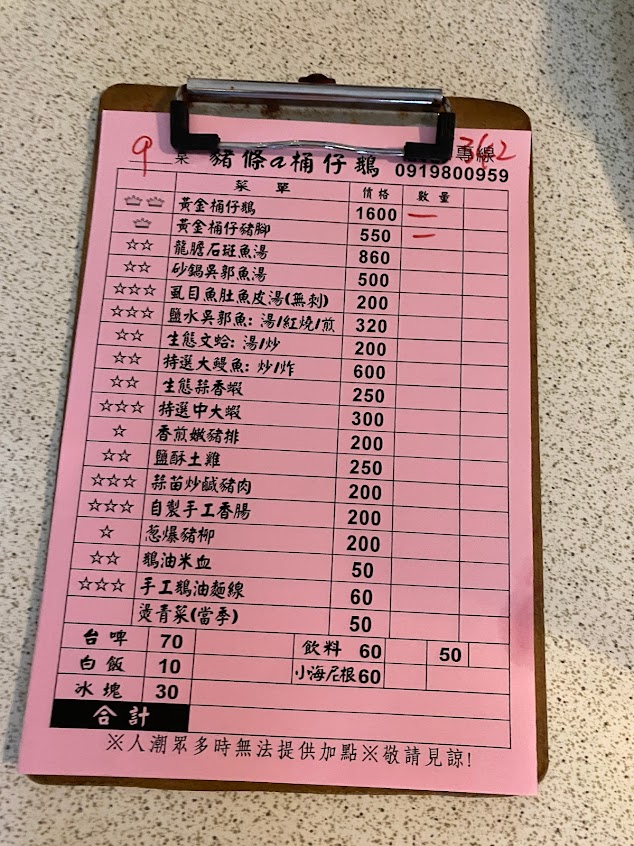 9 菜 豬條a桶仔鵝 專線
0919800959
菜單 價格 數量
黃金桶仔鵝 1600 一
黃金桶仔豬腳 550 一
☆☆ 龍膽石斑魚湯 860
☆☆ 砂鍋吳郭魚湯 500
☆☆☆ 虱目魚肚魚皮湯(無刺) 200
☆☆☆ 鹽水吳郭魚: 湯/紅燒/煎 320
☆☆ 生態文蛤: 湯/炒 200
☆☆ 特選大鰻魚: 炒/炸 600
☆☆ 生態蒜香蝦 250
☆☆☆ 特選中大蝦 300
☆ 香煎嫩豬排 200
☆☆ 鹽酥土雞 250
☆☆☆ 蒜苗炒鹹豬肉 200
☆☆☆ 自製手工香腸 200
☆ 葱爆豬柳 200
☆☆ 鵝油米血 50
☆☆☆ 手工鵝油麵線 60
燙青菜(當季) 50
台啤 70 飲料 60 50
白飯 10 小海尼根 60
冰塊 30
合計
※人潮眾多時無法提供加點※敬請見諒!